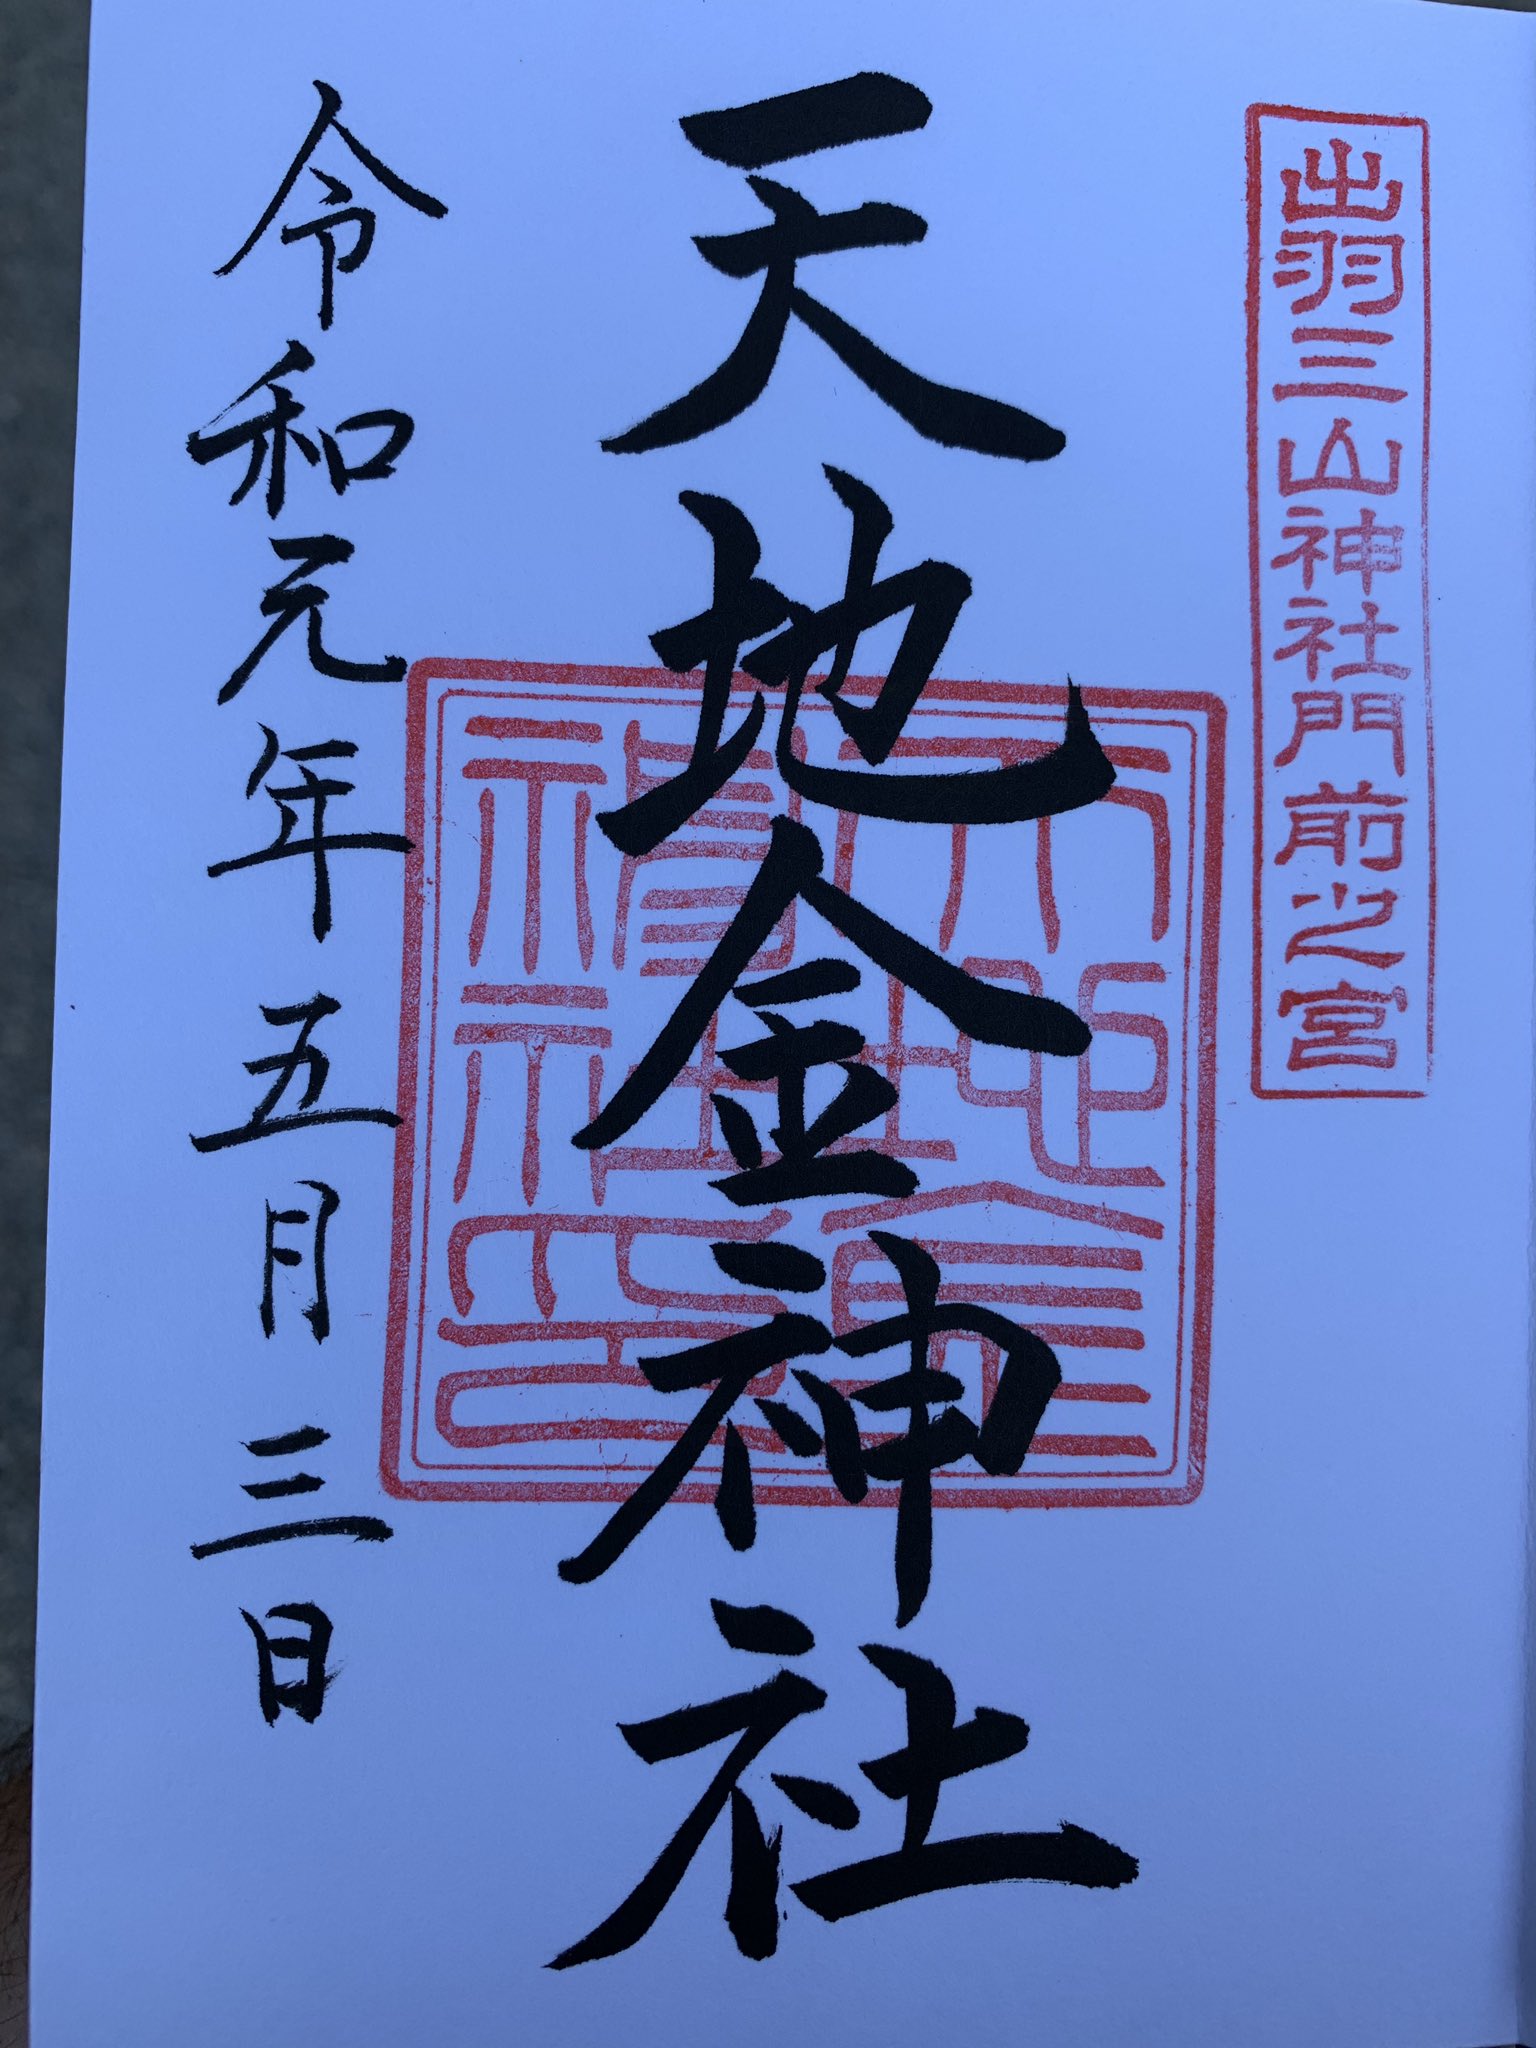 出羽三山神社門前之宮
天地金神社
令和元年五月三日